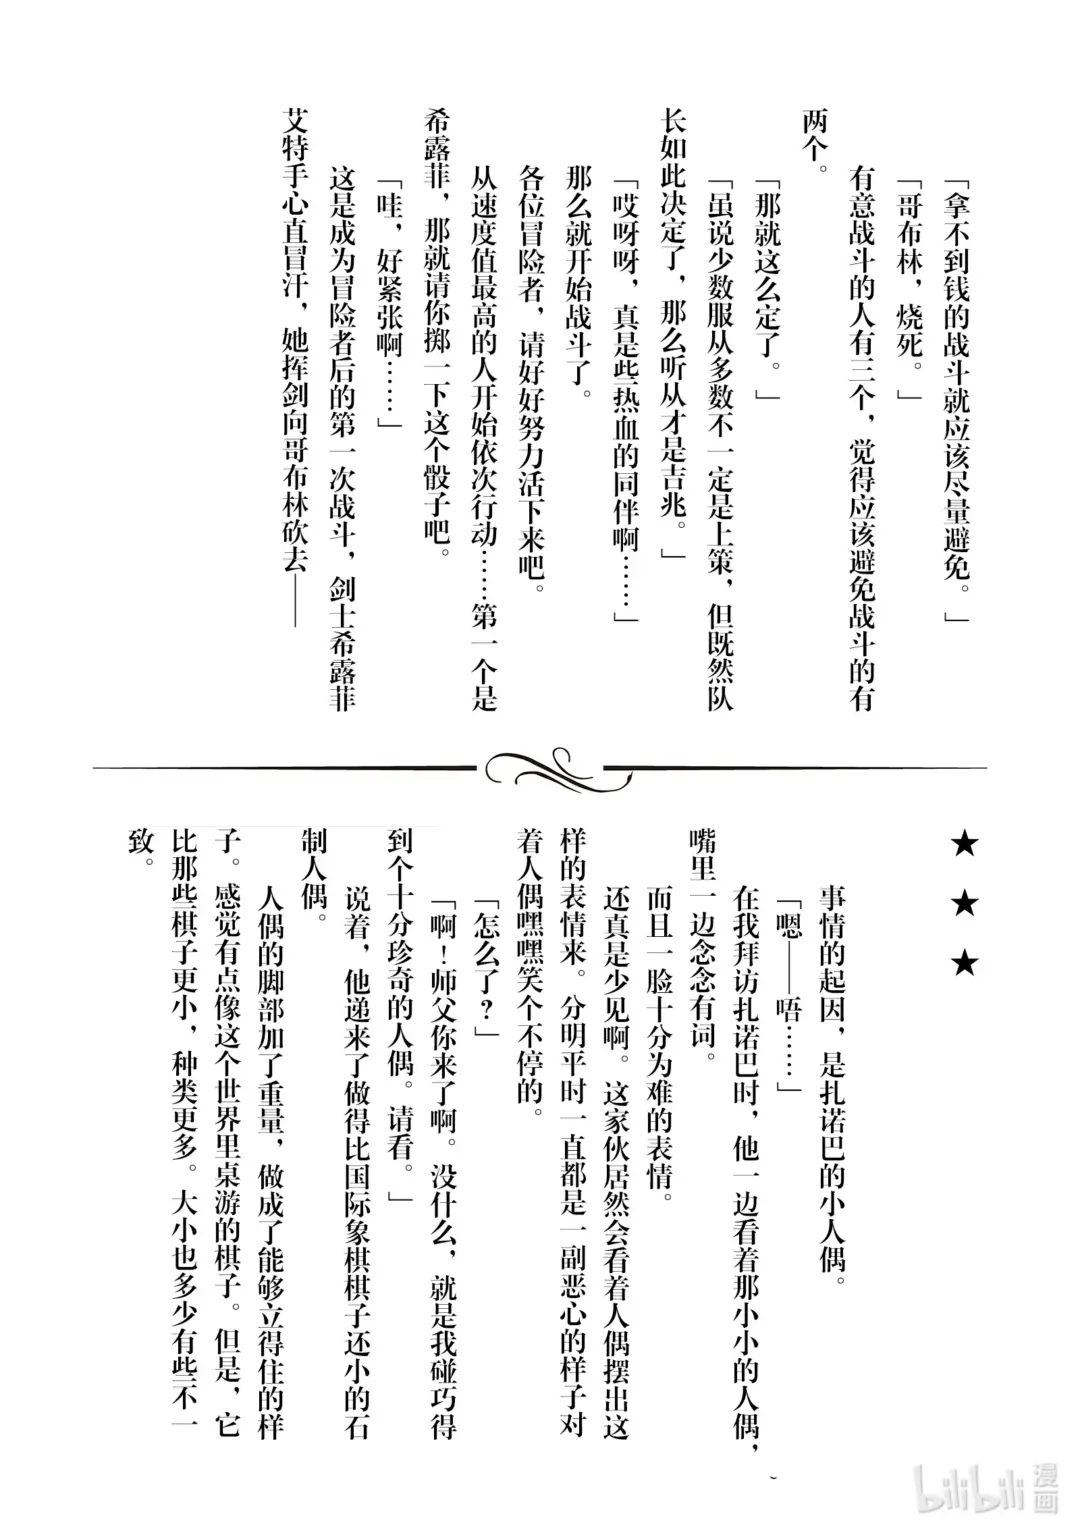 「拿不到钱的战斗就应该尽量避免。」
「哥布林，烧死。」
有意战斗的人有三个，觉得应该避免战斗的有
两个。
「那就这么定了。」
「虽说少数服从多数不一定是上策，但既然队
长如此决定了，那么听从才是吉兆。」
「哎呀呀，真是些热血的同伴啊……」
那么就开始战斗了。
各位冒险者，请好好努力活下来吧。
从速度值最高的人开始依次行动……第一个是
希露菲，那就请你掷一下这个骰子吧。
「哇，好紧张啊……」
这是成为冒险者后的第一次战斗，剑士希露菲
艾特手心直冒汗，她挥剑向哥布林砍去——
★★★
事情的起因，是扎诺巴的小人偶。
「嗯——唔……」
在我拜访扎诺巴时，他一边看着那小小的人偶，
嘴里一边念念有词。
而且一脸十分为难的表情。
还真是少见啊。这家伙居然会看着人偶摆出这
样的表情来。分明平时一直都是一副恶心的样子对
着人偶嘿嘿笑个不停的。
「怎么了？」
「啊！师父你来了啊。没什么，就是我碰巧得
到个十分珍奇的人偶。请看。」
说着，他递来了做得比国际象棋棋子还小的石
制人偶。
人偶的脚部加了重量，做成了能够立得住的样
子。感觉有点像这个世界里桌游的棋子。但是，它
比那些棋子更小，种类更多。大小也多少有些不一
致。
bilibili漫画